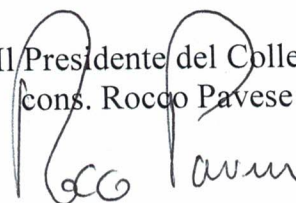 Il Presidente del Colle
cons. Rocco Pavese
Rocco Paven